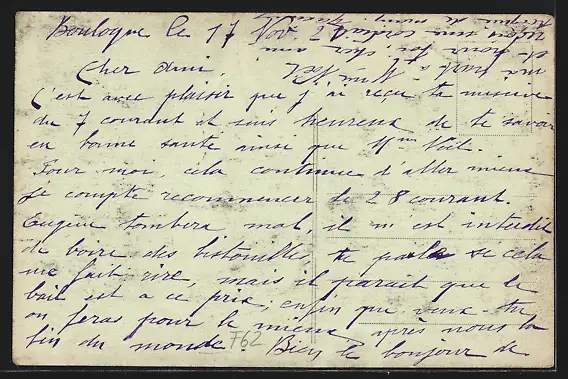 Boulogne le 17 Nov.
Cher Ami,
C'est avec plaisir que j'ai reçu ta missive
du 7 courant et suis heureux de te savoir
en bonne santé ainsi que Mme
Pour moi, cela continue d'aller mieux
je compte recommencer le 28 courant.
Eugène tombera mal, il m'est interdit
de boire des bistouilles, tu parles si cela
me fait rire, mais il parait que le
bail est a ce prix, enfin que veux-tu
on feras pour le mieux après nous la
fin du monde. Bien le bonjour de
F62
ma part à Mme